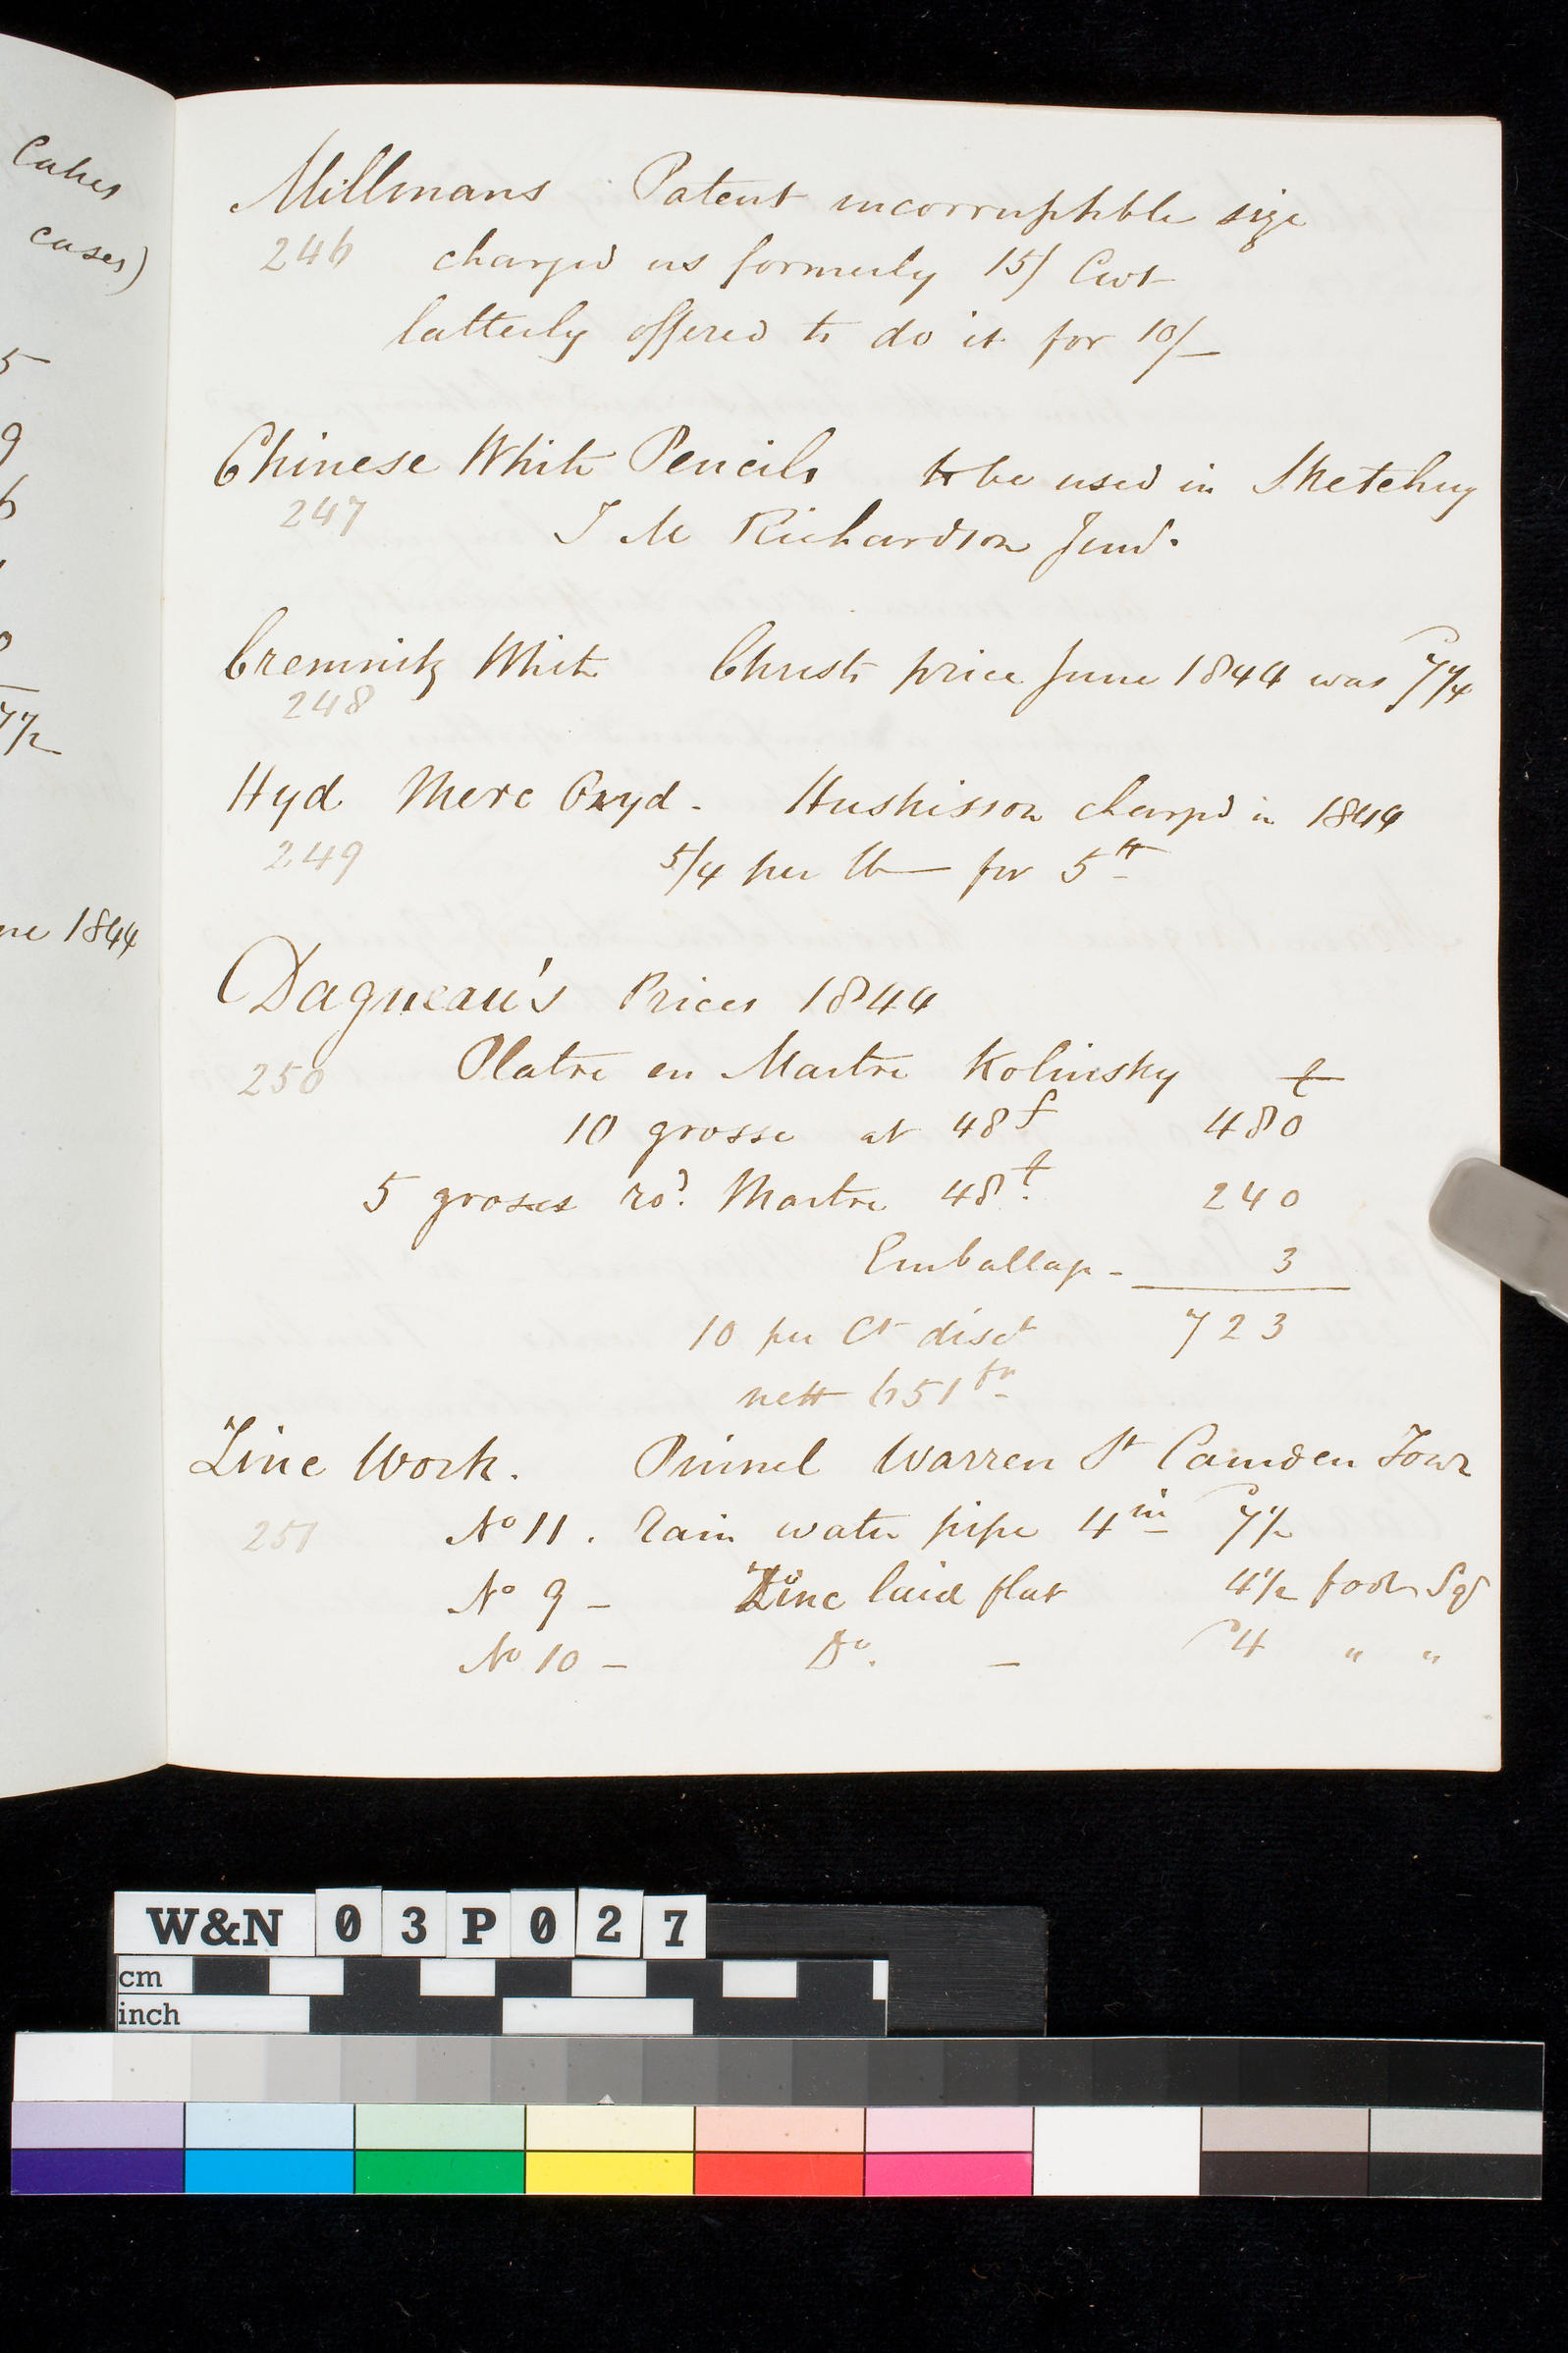 Cakes
cases)
5
9
6
0
7½
ne 1844
Millmans Patent incorruptible size
246 charged us formerly 15/ Cwt
latterly offered to do it for 10/-
Chinese White Pencils to be used in Sketching
247 T M Richardson Junr.
Cremnitz White Christs price June 1844 was 7¼
248
Hyd Merc Oxyd - Huskisson charged in 1844
249 5/4 per lb — for 5 lb
Dagneau's Prices 1844
250 Platre en Martre Kolinsky f
10 grosse at 48 f 480
5 groses ro? Martre 48 f. 240
Emballage - 3
10 per Ct disct 723
nett 651 fr
Zinc Work. Pinnel Warren St Camden Town
251 No 11. Rain water pipe 4 in 7½
No 9 - Zinc laid flat 4½ foot Sqr
No 10 - Do. - 4 " "
W&N 03P027
cm
inch